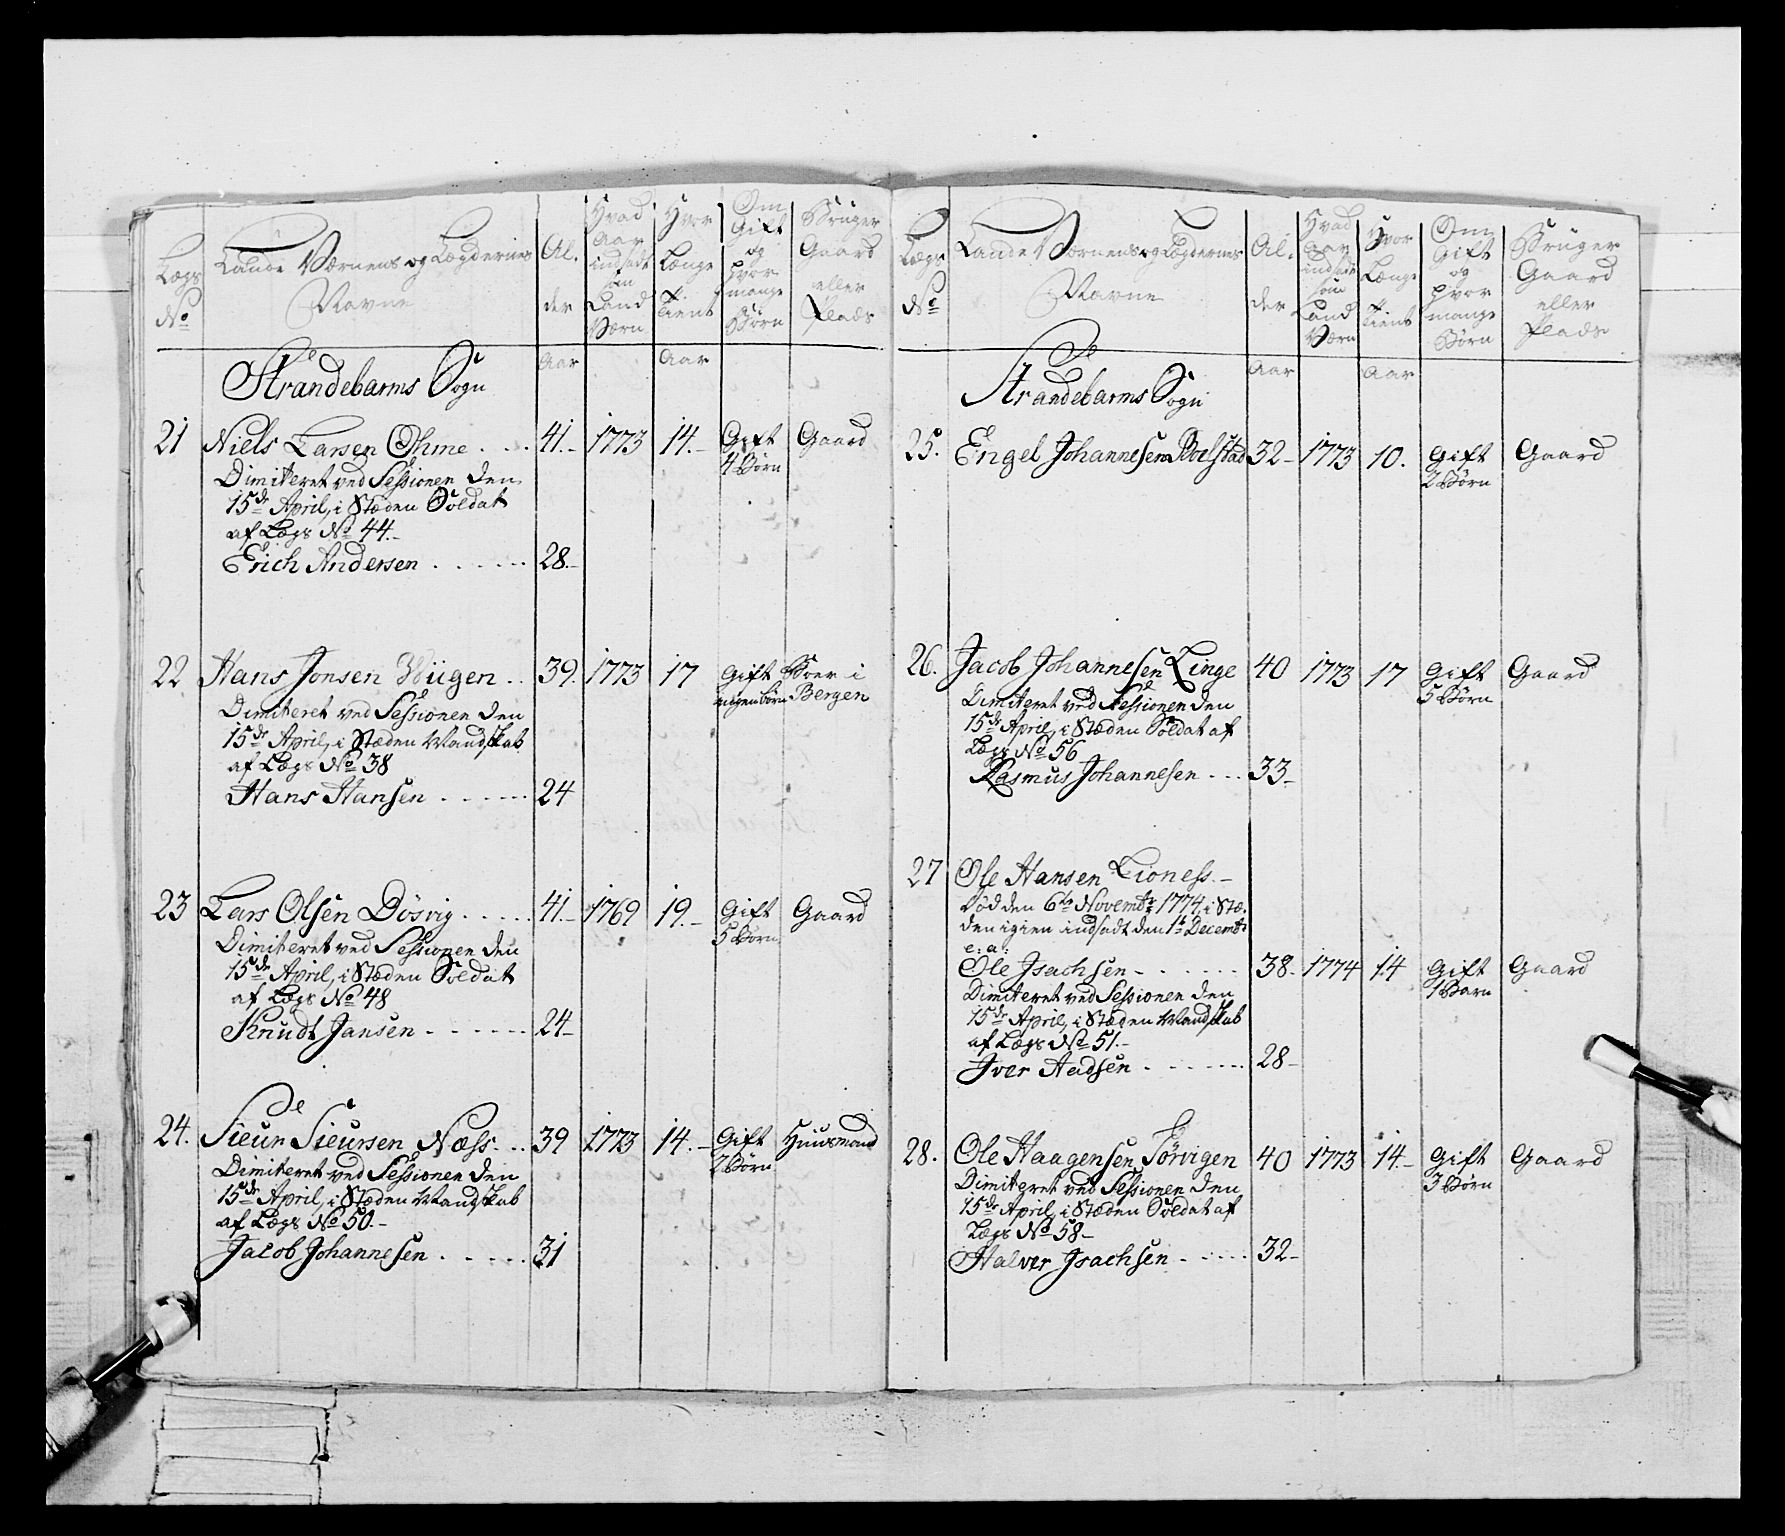 Lægs
No
Lande Værnens og Lægdernes
Navne
Al.
der
Hvad
Aar
indsadt
som
Land
Værn
Hvor
Længe
tient
Om
Gift
og
hvor
mange
Børn
Bruger
Gaard
eller
Plads
Strandebarms Sogn
Aar
Aar
21 Niels Larsen Ohme . . . 41.- 1773 14.- Gift Gaard
4 Børn
Dimiteret ved Sessionen den
15de April, i Stæden Soldat
af Lægs No 44.-
Erich Andersen . . . . . . 28.-
22 Hans Jonsen Wiigen . . 39. 1773 17 Gift Boer i
ingen børn Bergen
Dimiteret ved Sessionen den
15de April, i Stæden Mandskab
af Lægs No 38
Hans Hansen . . . . . . 24
23 Lars Olsen Dösvig . . . . . 41.- 1769 19.- Gift Gaard
5 Børn
Dimiteret ved Sessionen den
15de April, i Stæden Soldat
af Lægs No 48
Knudt Jansen . . . . . . 24-
24. Sieur Sieursen Næss. . . 39 1773 14.- Gift Huusmand
2 Børn
Dimiteret ved Sessionen den
15de April, i Stæden Mandskab
af Lægs No 50.-
Jacob Johannesen . . . . . 31
Lægs
No
Lande Værnens og Lægdernes
Navne
Al.
der
Hvad
Aar
indsadt
som
Land
Værn
Hvor
Længe
tient
Om
Gift
og
hvor
mange
Børn
Bruger
Gaard
eller
Plads
Strandebarms Sogn
Aar
Aar
25. Engel Johannesen Roelstad 32- 1773 10. Gift Gaard
2 Børn
26. Jacob Johannesen Linge 40 1773 17 Gift Gaard
5 Børn
Dimiteret ved Sessionen den
15de April, i Stæden Soldat af
Lægs No 56
Rasmus Johannesen . . . 33-
27 Ole Hansen Lioness.-
Død den 6te Novembr 1774, i Stæ-
den igien indsadt den 1te Decembr
e: a:
Ole Isachsen - . . . . . . 38- 1774 14 Gift Gaard
1 Barn
Dimiteret ved Sessionen den
15de April, i Stæden Mandskab
af Lægs No 51.-
Iver Aadsen . . . . . . . 28-
28. Ole Haagensen Tørvigen 40 1773 14.- Gift Gaard
3 Børn
Dimiteret ved Sessionen den
15de April, i Stæden Soldat af
Lægs No 58-
Halver Isachsen . . . . . 32-